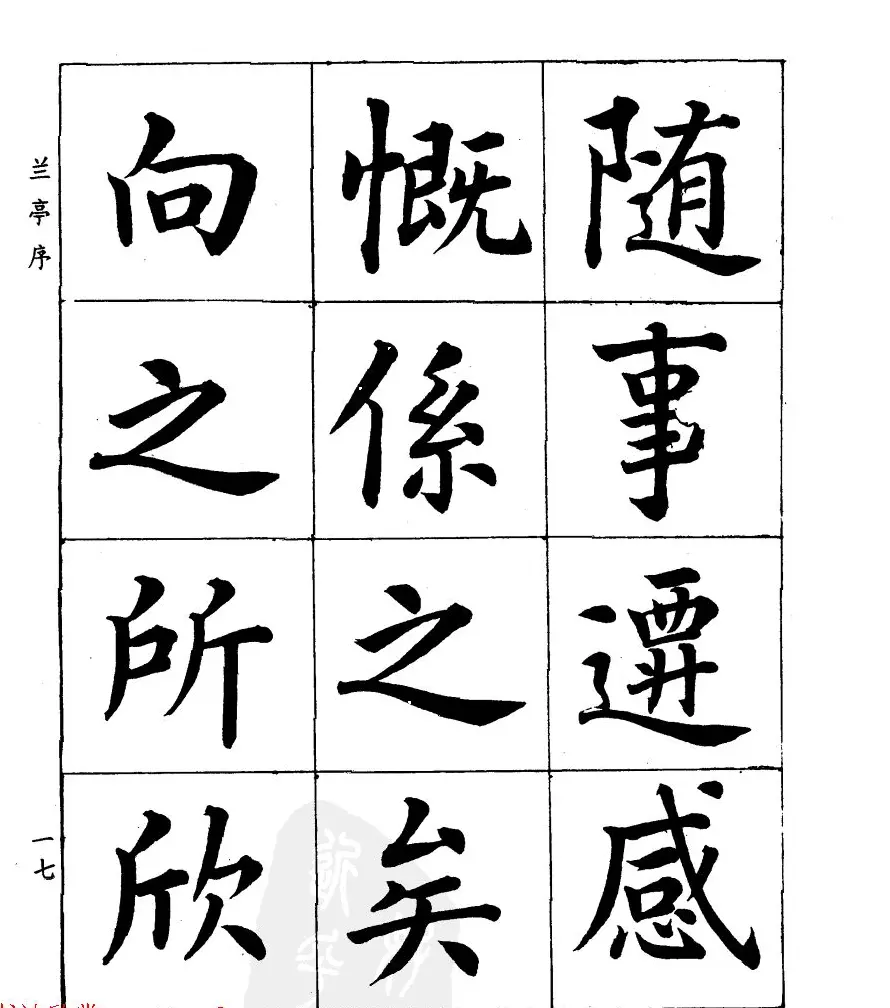 随事遷感
慨係之矣
向之所欣
兰亭序
一七